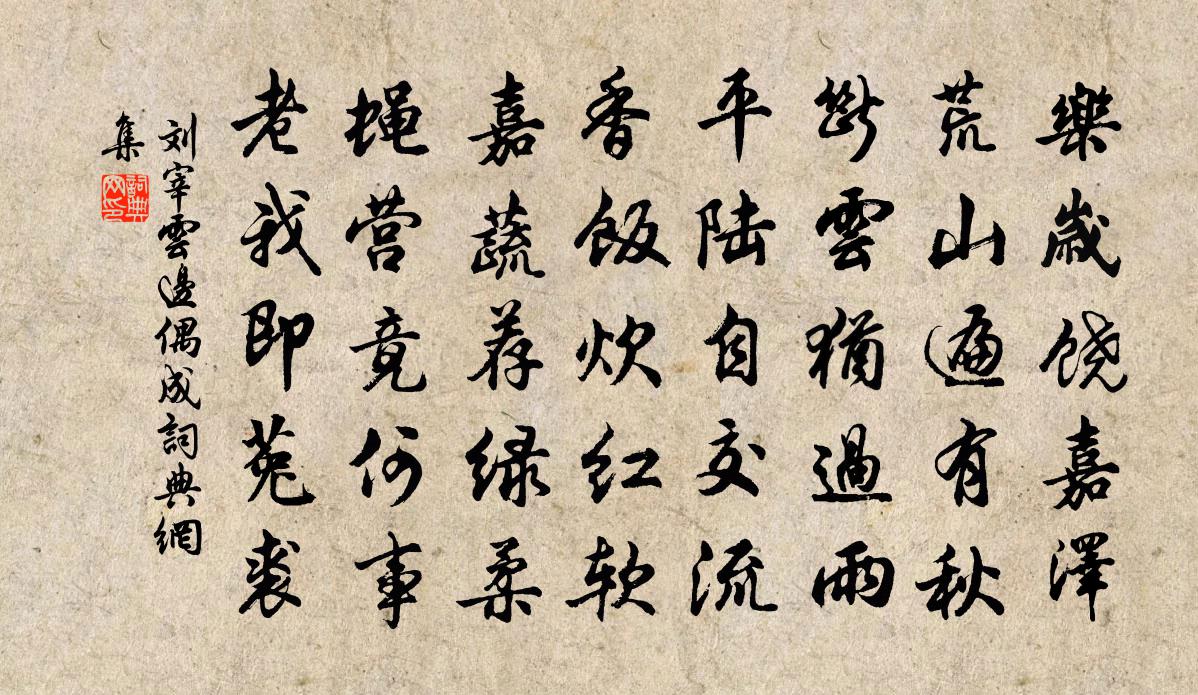 樂歲饶嘉澤
荒山遍有秋
断雲猶過雨
平陆自交流
香飯炊红软
嘉蔬荐绿柔
蝇营竟何事
老我即菟裘
刘宰雲邊偶成詞典網
集
詞典
网印